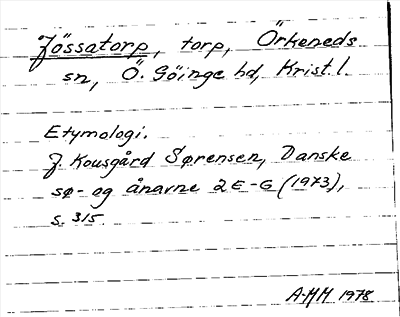 Jössatorp, torp, Örkeneds
sn, Ö. Göinge hd, Krist. l.
Etymologi.
J. Kousgård Sørensen, Danske
sø- og ånavne 2 E-G (1973),
s. 315.
A-MM 1978